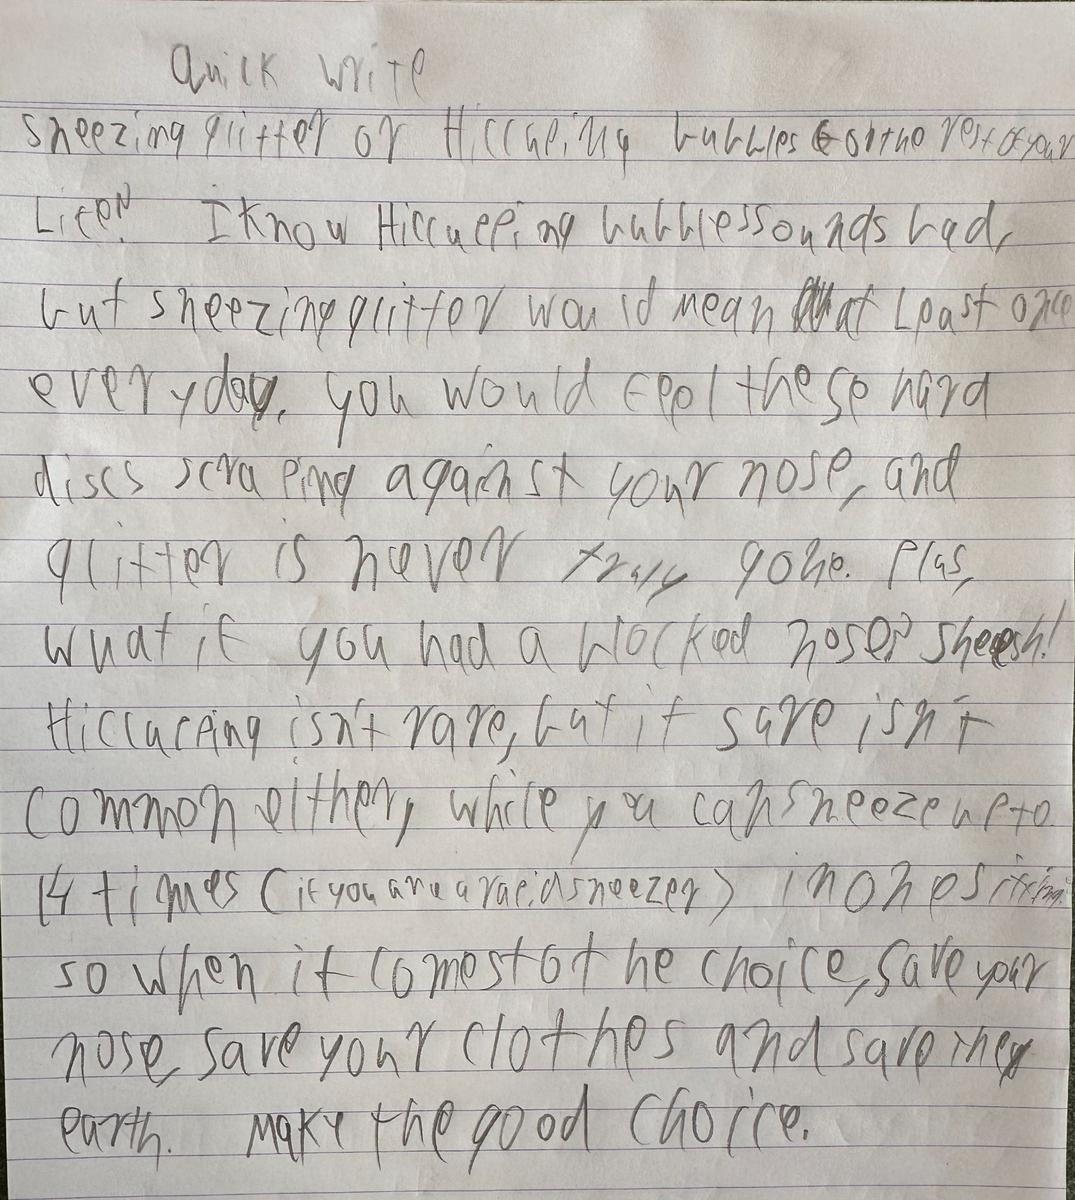 Quick write
sneezing glitter or Hiccuping bubbles for the rest of your
Life? I know Hiccupping bubbles sounds bad,
but sneezing glitter would mean at least once
every day, you would feel these hard
discs scraping against your nose, and
glitter is never truly gone. Plus,
what if you had a blocked nose? Sheesh!
Hiccupping isn't rare, but it sure isn't
common either, while you can sneeze up to
14 times (if you are a rapid sneezer) in one sitting.
so when it comes to the choice, save your
nose, save your clothes and save the
earth. Make the good choice.